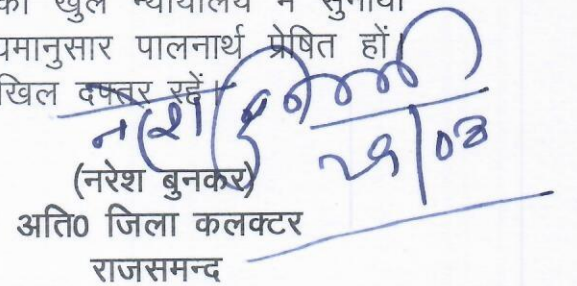 का खुले न्यायालय में सुनाया
यमानुसार पालनार्थ प्रेषित हों।
खिल दफ्तर रहें।
(नरेश बुनकर)
अति0 जिला कलक्टर
राजसमन्द